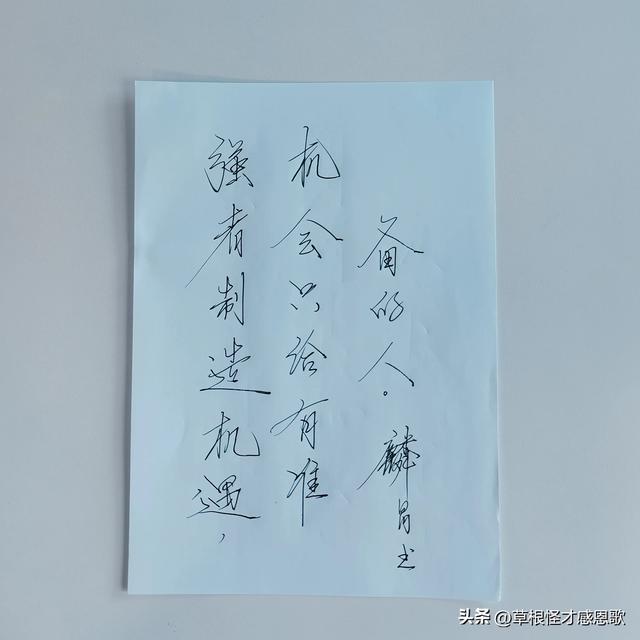 强者制造机遇，
机会只给有准
备的人。麟昌书
头条 @草根怪才感恩歌